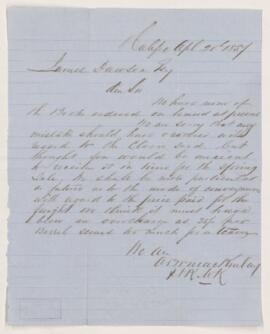 Halifax Apl 20th 1857
James Dawson Esq
Dear Sir
We have none of
the Books ordered on hand at present
We are sorry that any
mistake should have occurred with
regard to the Clover seed but
thought you would be anxious
to receive it in time for the Spring
Sale, We shall be more particular
in future as to the mode of conveyance
with regard to the price paid for the
freight we think it must have
been an overcharge as 25/ per
Barrel seems too much for a
We are